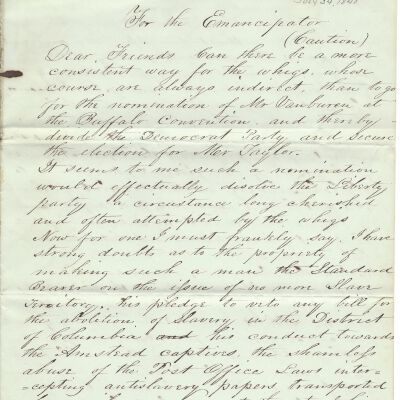 July 24, 1848
For the Emancipator
(Caution)
Dear Friends Can there be a more
consistent way for the whigs, whose
course are always indirect, than to go
for the nomination of Mr Vanburen at
the Buffalo Convention and thereby
divide the Democrat Party and secure
the election for Mr Taylor.
It seems to me such a nomination
would effectually disolve the Liberty
party a circumstance long cherished
and often attempted by the whigs
Now for one I must frankly say, I have
strong doubts as to the propriety of
making such a man the Standard
Bearer on the issue of no more Slave
Territory, his pledge to veto any bill for
the abolition of Slavery in the District
of Columbia and his conduct towards
the Amstead captives, the shameless
abuse of the Post Office Laws inter-
-cepting antislavery papers transported